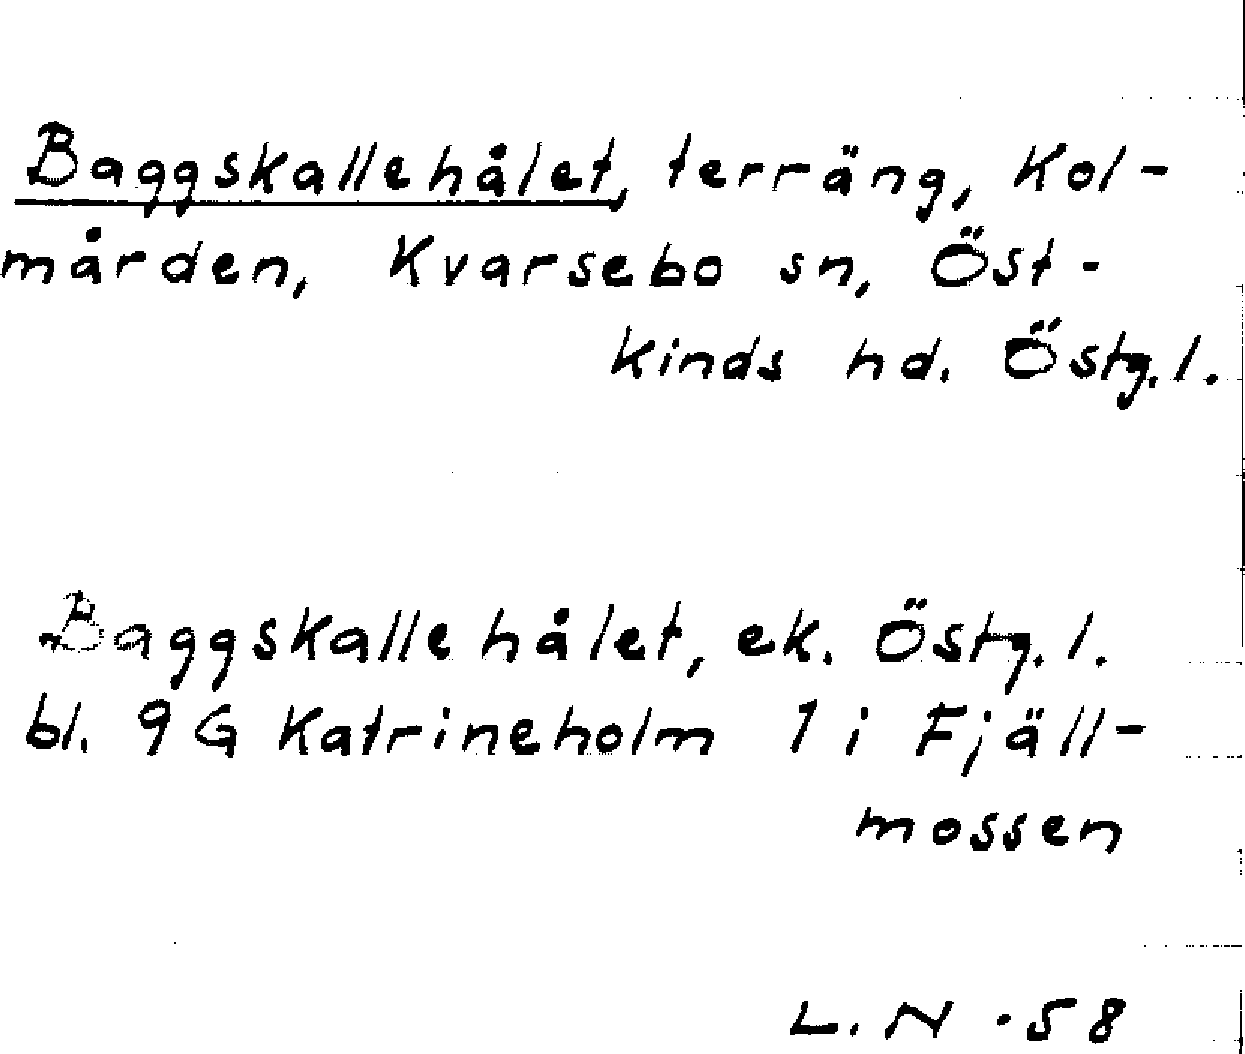 Baggskallehålet, terräng, Kol-
mården, Kvarsebo sn, Öst-
kinds hd. Östg.l.
Baggskallehålet, ek. Östg.l.
bl. 9G Katrineholm 1 i Fjäll-
mossen
L. N -58